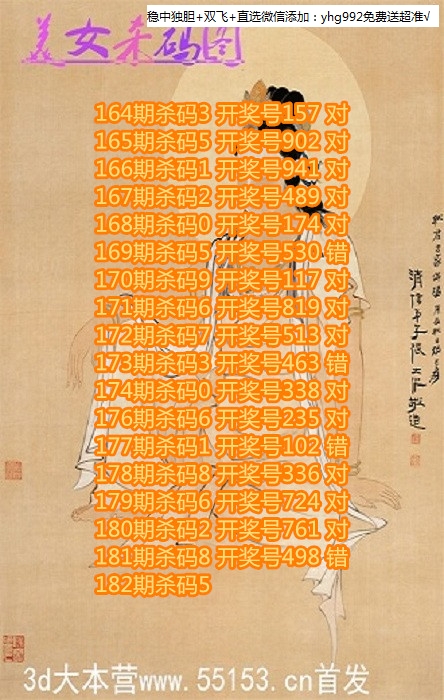 稳中独胆+双飞+直选微信添加：yhg992免费送超准√
美女杀码图
164期杀码3 开奖号157 对
165期杀码5 开奖号902 对
166期杀码1 开奖号941 对
167期杀码2 开奖号489 对
168期杀码0 开奖号174 对
169期杀码5 开奖号530 错
170期杀码9 开奖号117 对
171期杀码6 开奖号819 对
172期杀码7 开奖号513 对
173期杀码3 开奖号463 错
174期杀码0 开奖号338 对
176期杀码6 开奖号235 对
177期杀码1 开奖号102 错
178期杀码8 开奖号336 对
179期杀码6 开奖号724 对
180期杀码2 开奖号761 对
181期杀码8 开奖号498 错
182期杀码5
3d大本营www.55153.cn首发